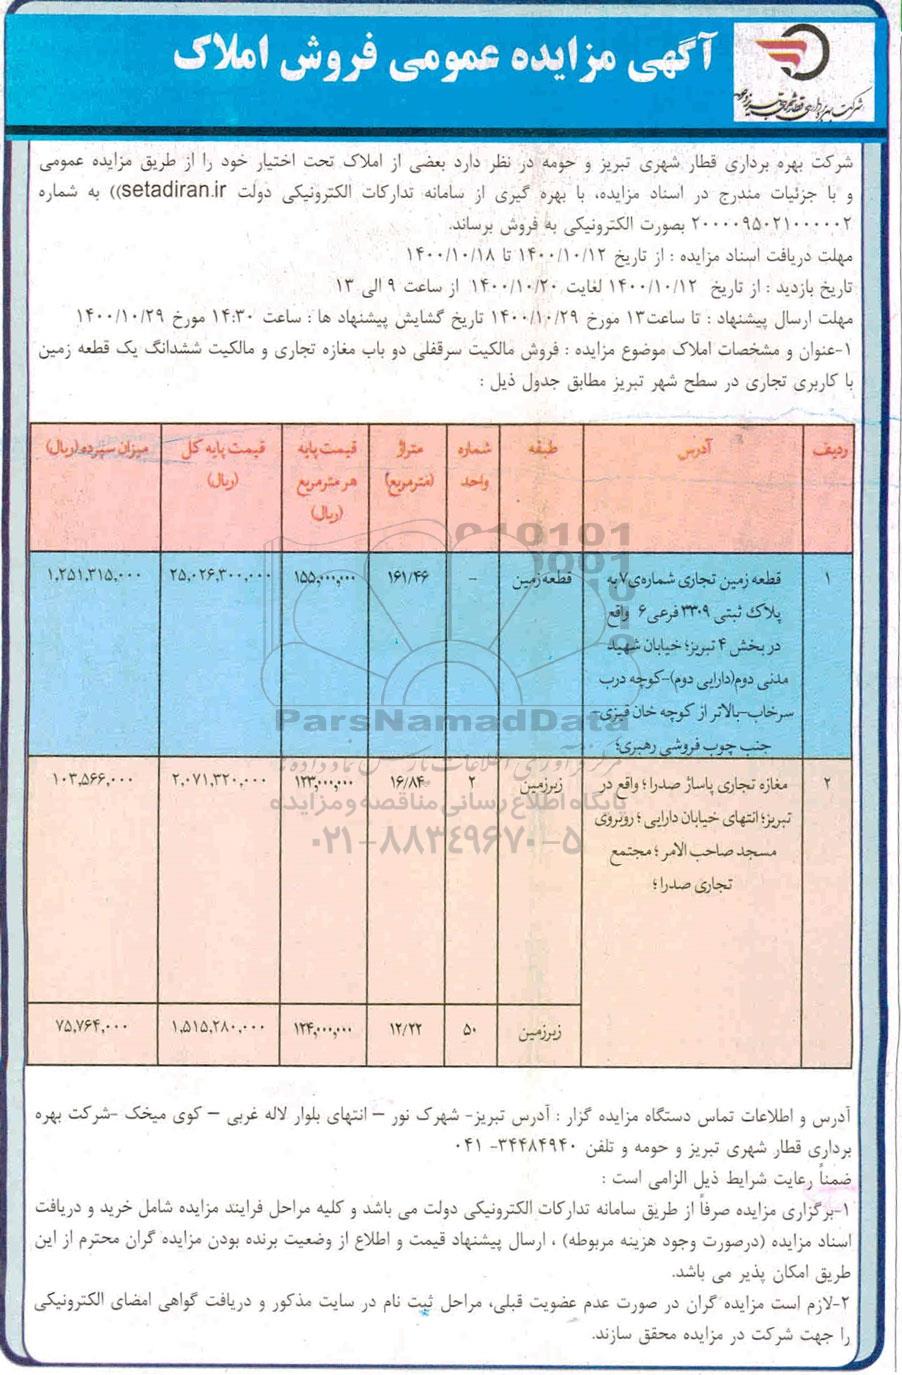 آگهی مزایده عمومی فروش املاک
شرکت بهره برداری قطار شهری تبریز و حومه
شرکت بهره برداری قطار شهری تبریز و حومه در نظر دارد بعضی از املاک تحت اختیار خود را از طریق مزایده عمومی
و با جزئیات مندرج در اسناد مزایده، با بهره گیری از سامانه تدارکات الکترونیکی دولت setadiran.ir)) به شماره
۲۰۰۰۰۹۵۰۲۱۰۰۰۰۰۲ بصورت الکترونیکی به فروش برساند.
مهلت دریافت اسناد مزایده : از تاریخ ۱۴۰۰/۱۰/۱۲ تا ۱۴۰۰/۱۰/۱۸
تاریخ بازدید : از تاریخ ۱۴۰۰/۱۰/۱۲ لغایت ۱۴۰۰/۱۰/۲۰ از ساعت ۹ الی ۱۳
مهلت ارسال پیشنهاد : تا ساعت۱۳ مورخ ۱۴۰۰/۱۰/۲۹ تاریخ گشایش پیشنهاد ها : ساعت ۱۴:۳۰ مورخ ۱۴۰۰/۱۰/۲۹
۱-عنوان و مشخصات املاک موضوع مزایده : فروش مالکیت سرقفلی دو باب مغازه تجاری و مالکیت ششدانگ یک قطعه زمین
با کاربری تجاری در سطح شهر تبریز مطابق جدول ذیل :
ردیف آدرس طبقه شماره متراژ قیمت پایه قیمت پایه کل میزان سپرده (ریال)
واحد (مترمربع) هر مترمربع (ریال)
(ریال)
۱ قطعه زمین تجاری شماره‌ی۷ به قطعه زمین - ۱۶۱/۴۶ ۱۵۵,۰۰۰,۰۰۰ ۲۵,۰۲۶,۳۰۰,۰۰۰ ۱,۲۵۱,۳۱۵,۰۰۰
پلاک ثبتی ۳۳۰۹ فرعی۶ واقع
در بخش ۴ تبریز؛ خیابان شهید
مدنی دوم(دارایی دوم)-کوچه درب
سرخاب-بالاتر از کوچه خان قیزی-
جنب چوب فروشی رهبری؛
۲ مغازه تجاری پاساژ صدرا ؛ واقع در زیرزمین ۲ ۱۶/۸۴ ۱۲۳,۰۰۰,۰۰۰ ۲,۰۷۱,۳۲۰,۰۰۰ ۱۰۳,۵۶۶,۰۰۰
تبریز؛ انتهای خیابان دارایی ؛ روبروی
مسجد صاحب الامر ؛ مجتمع
تجاری صدرا ؛
زیرزمین ۵۰ ۱۲/۲۲ ۱۲۴,۰۰۰,۰۰۰ ۱,۵۱۵,۲۸۰,۰۰۰ ۷۵,۷۶۴,۰۰۰
ParsNamadData
مرکز فرآوری اطلاعات پارس نماد داده ها
پایگاه اطلاع رسانی مناقصه و مزایده
۰۲۱-۸۸۳۴۹۶۷۰-۵
آدرس و اطلاعات تماس دستگاه مزایده گزار : آدرس تبریز- شهرک نور – انتهای بلوار لاله غربی – کوی میخک -شرکت بهره
برداری قطار شهری تبریز و حومه و تلفن ۳۴۴۸۴۹۴۰- ۰۴۱
ضمناً رعایت شرایط ذیل الزامی است :
۱-برگزاری مزایده صرفاً از طریق سامانه تدارکات الکترونیکی دولت می باشد و کلیه مراحل فرایند مزایده شامل خرید و دریافت
اسناد مزایده (درصورت وجود هزینه مربوطه) ، ارسال پیشنهاد قیمت و اطلاع از وضعیت برنده بودن مزایده گران محترم از این
طریق امکان پذیر می باشد.
۲-لازم است مزایده گران در صورت عدم عضویت قبلی، مراحل ثبت نام در سایت مذکور و دریافت گواهی امضای الکترونیکی
را جهت شرکت در مزایده محقق سازند.